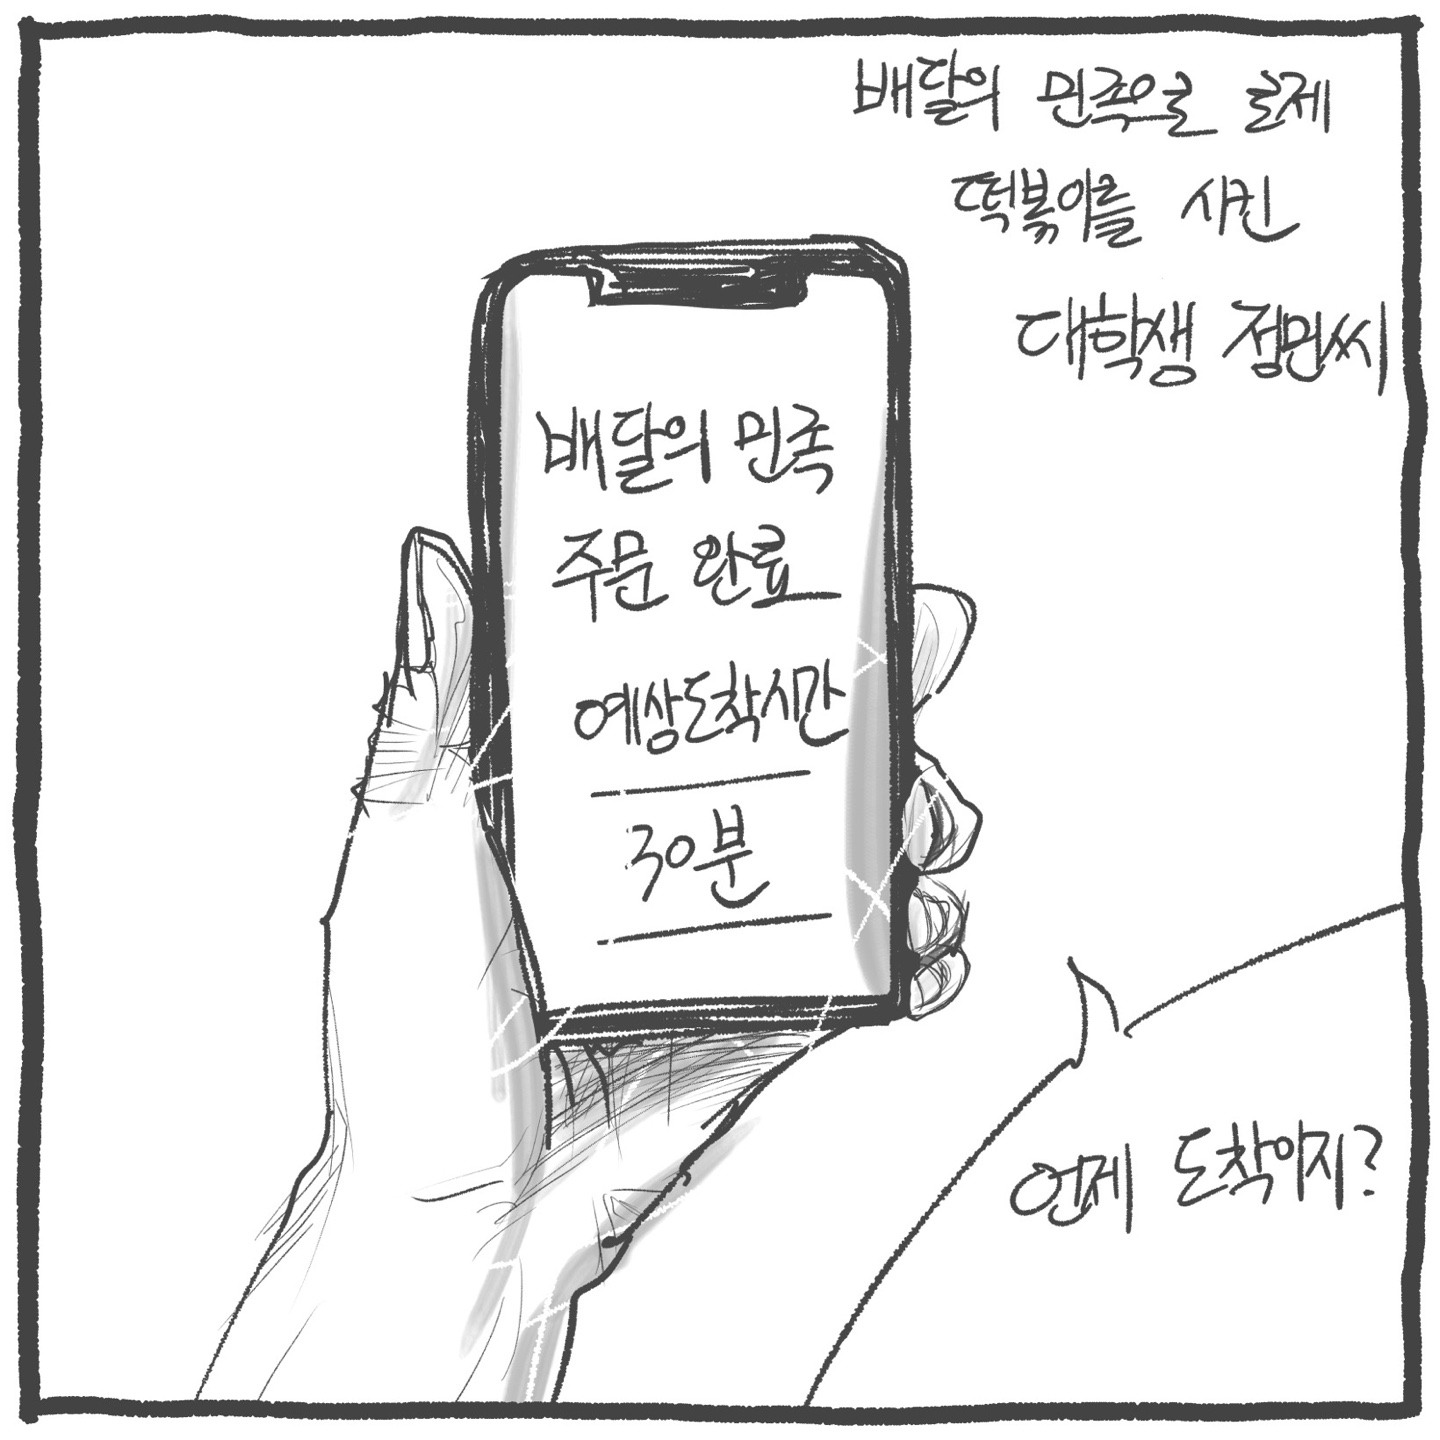 배달의 민족으로 로제
떡볶이를 시킨
대학생 정민씨
배달의 민족
주문 완료
예상도착시간
30분
언제 도착이지?